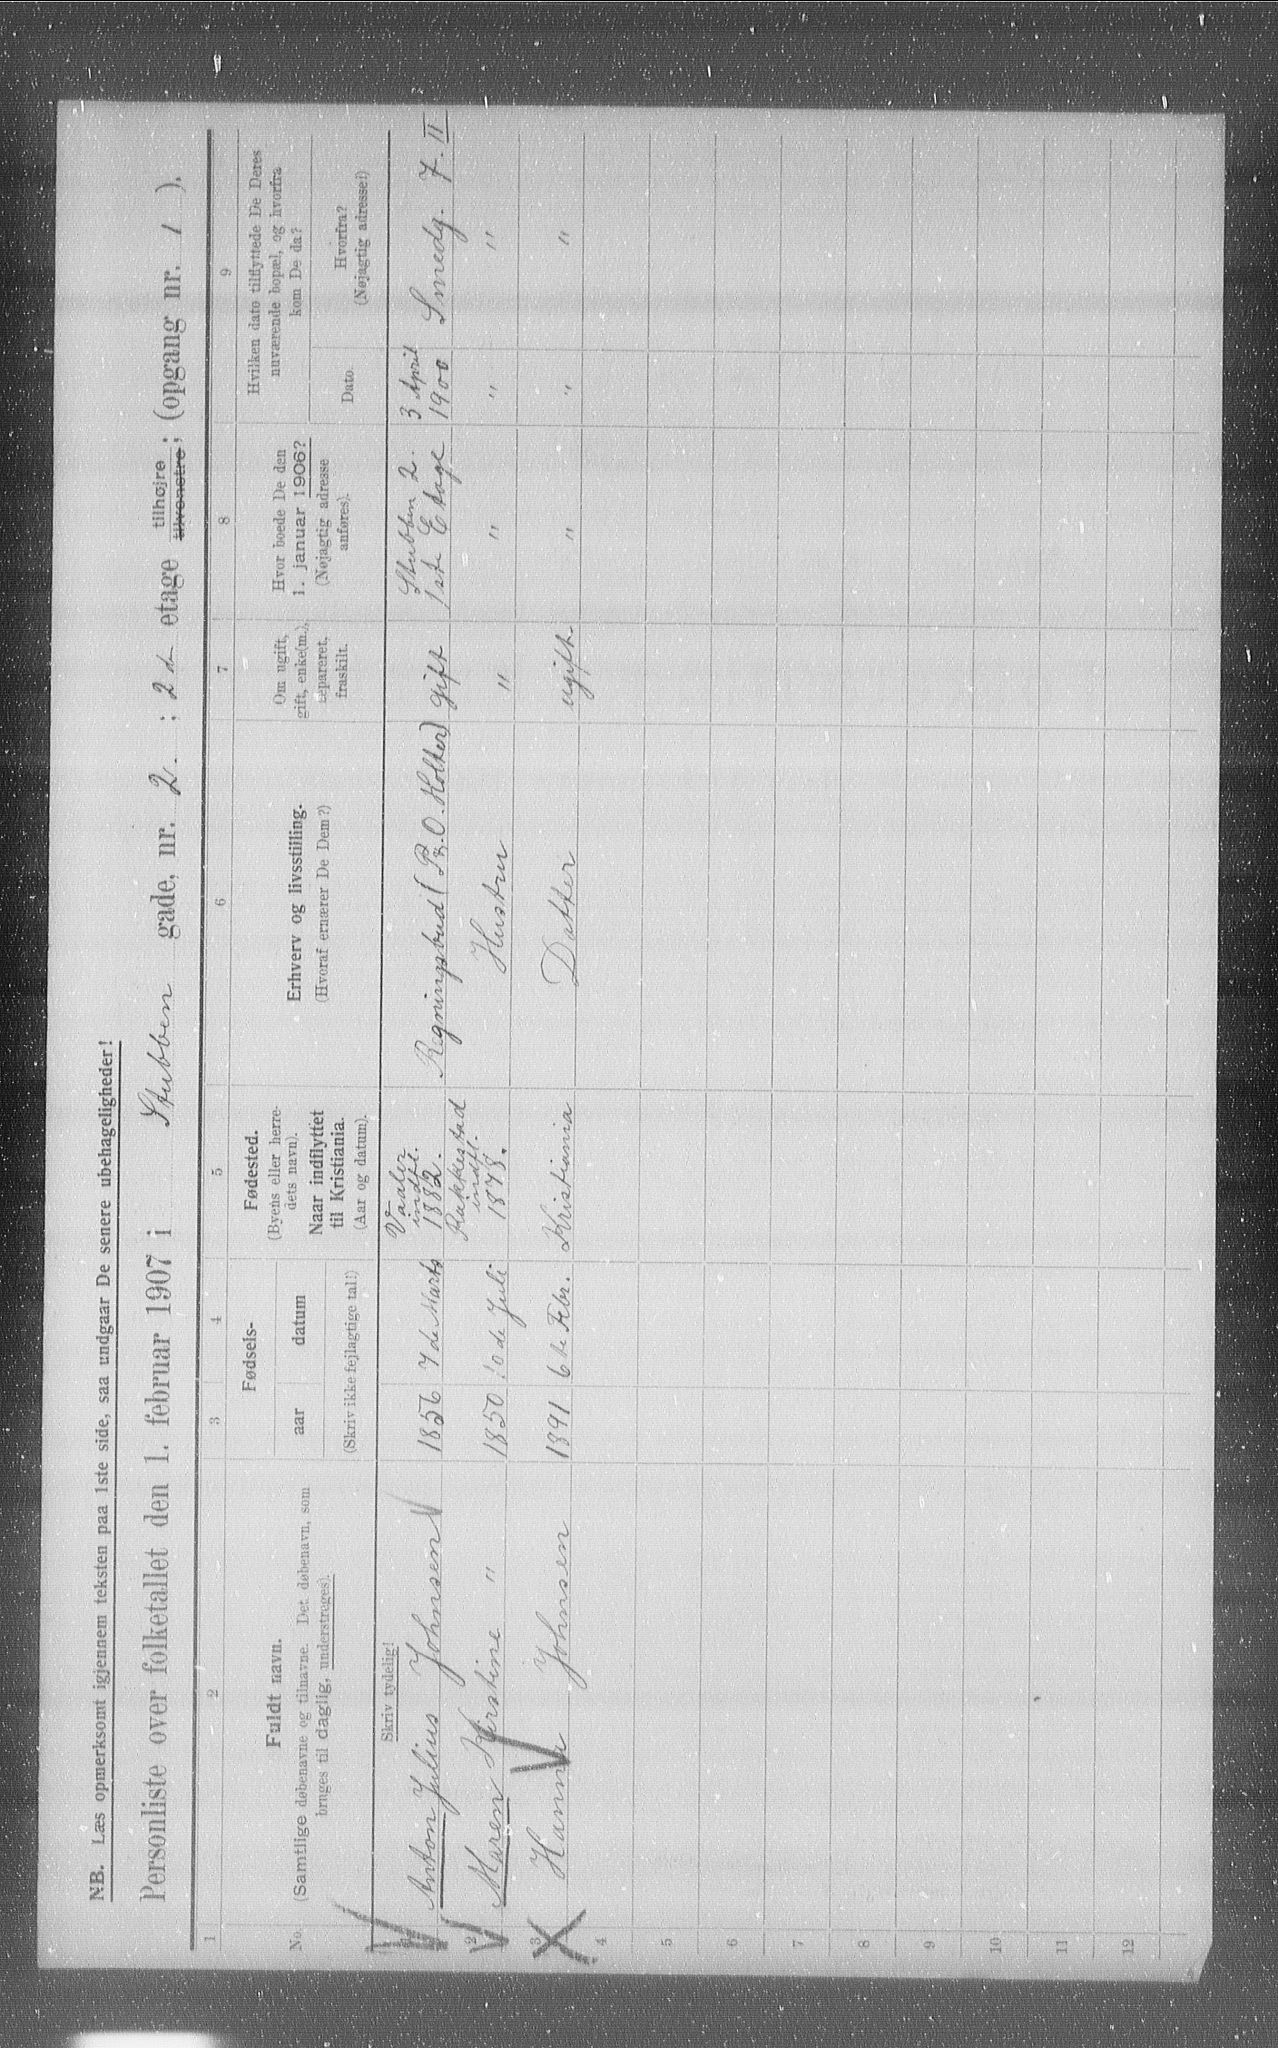 NB. Læs opmerksomt igjennem teksten paa 1ste side, saa undgaar De senere ubehageligheder!
Personliste over folketallet den 1. februar 1907 i Stubben gade, nr. 2. ; 2d etage tilhøjre; tilvenstre; (opgang nr. 1 ).
1 2 3 4 5 6 7 8 9
No.
Fuldt navn.
(Samtlige døbenavne og tilnavne. Det døbenavn, som
bruges til daglig, understreges).
Skriv tydelig!
Fødsels-
aar datum
(Skriv ikke fejlagtige tal!)
Fødested.
(Byens eller herre-
dets navn).
Naar indflyttet
til Kristiania.
(Aar og datum).
Erhverv og livsstilling.
(Hvoraf ernærer De Dem?)
Om ugift,
gift, enke(m.),
separeret,
fraskilt.
Hvor boede De den
1. januar 1906?
(Nøjagtig adresse
anføres).
Hvilken dato tilflyttede De Deres
nuværende bopæl, og hvorfra
kom De da?
Dato
Hvorfra?
(Nøjagtig adresse!)
1 Anton Julius Johnsen 1856 7de Marts Vaaler indfl. 1882. Regningsbud (P. O. Kolther) gift Stubben 2. 1ste Etage 3 April 1900 Smedg. 7. II
2 Maren Kirstine " 1850 10de Juli Rakkestad indfl. 1878. Hustru " " " "
3 Hanna Johnsen 1891 6te Febr. Kristiania Datter ugift " " "
4
5
6
7
8
9
10
11
12